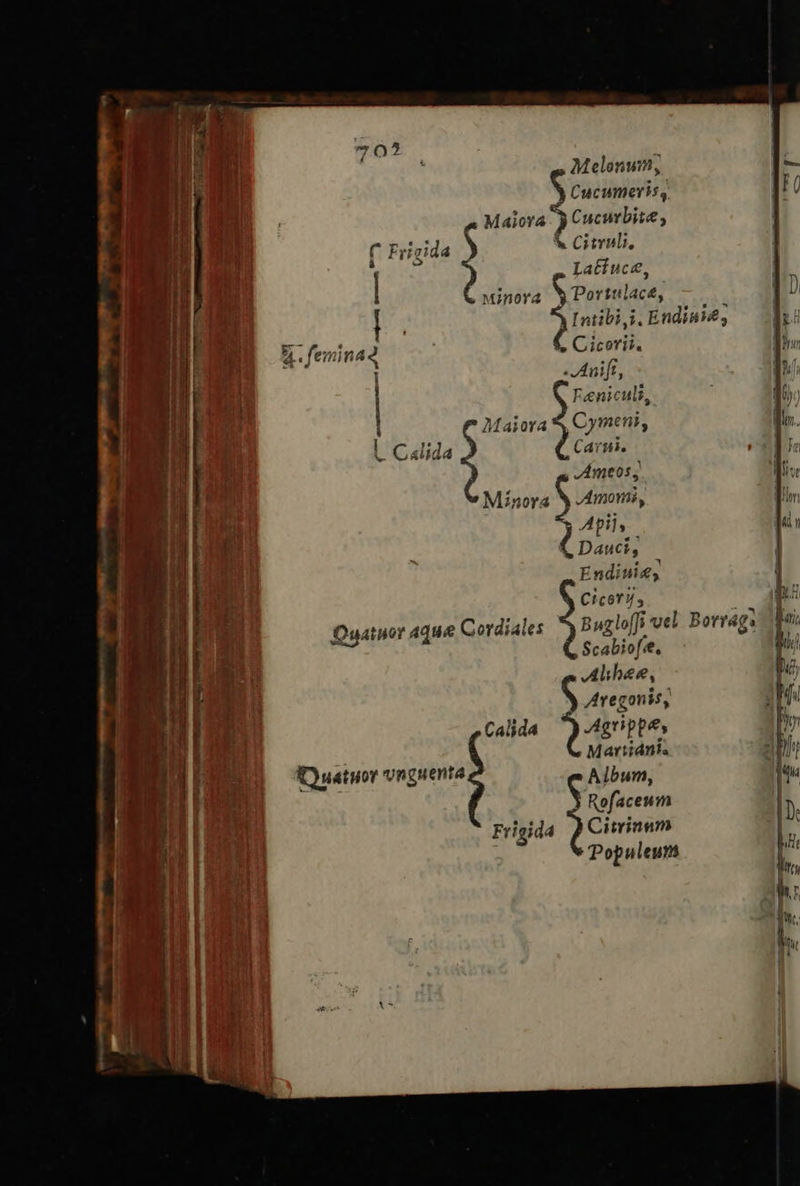 702
Melonum,
Cucumeris,
Maiora Cucurbitæ,
Citruli,
Frigida
Lactucæ,
Minora Portulacæ,
Intibi, i. Endiuiæ,
Cicorii.
4. semina
Anisi,
Fæniculi,
Maiora Cymeni,
Carui.
Calida
Ameos,
Minora Amomi,
Apij,
Dauci,
Endiuiæ,
Cicorij,
Quatuor aquæ Cordiales Buglossi vel Borrag.
Scabiosæ.
Altheæ,
Aregonis,
Calida Agrippæ,
Martiani.
Quatuor vnguenta
Album,
Rosaceum
Frigida Citrinum
Populeum